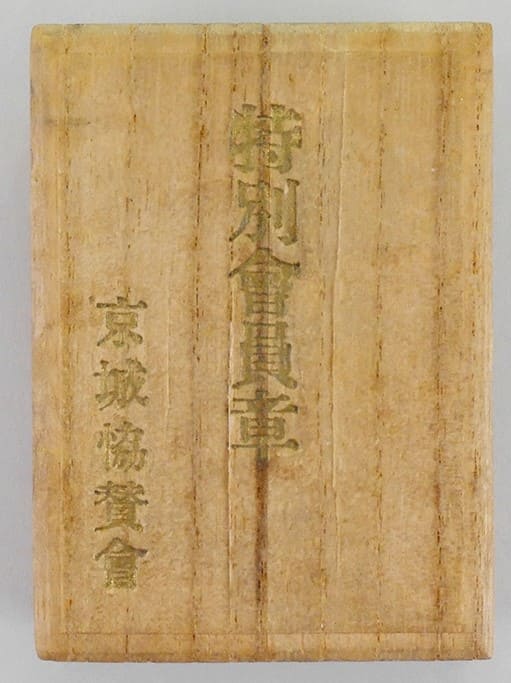 特別會員章
京城協賛會